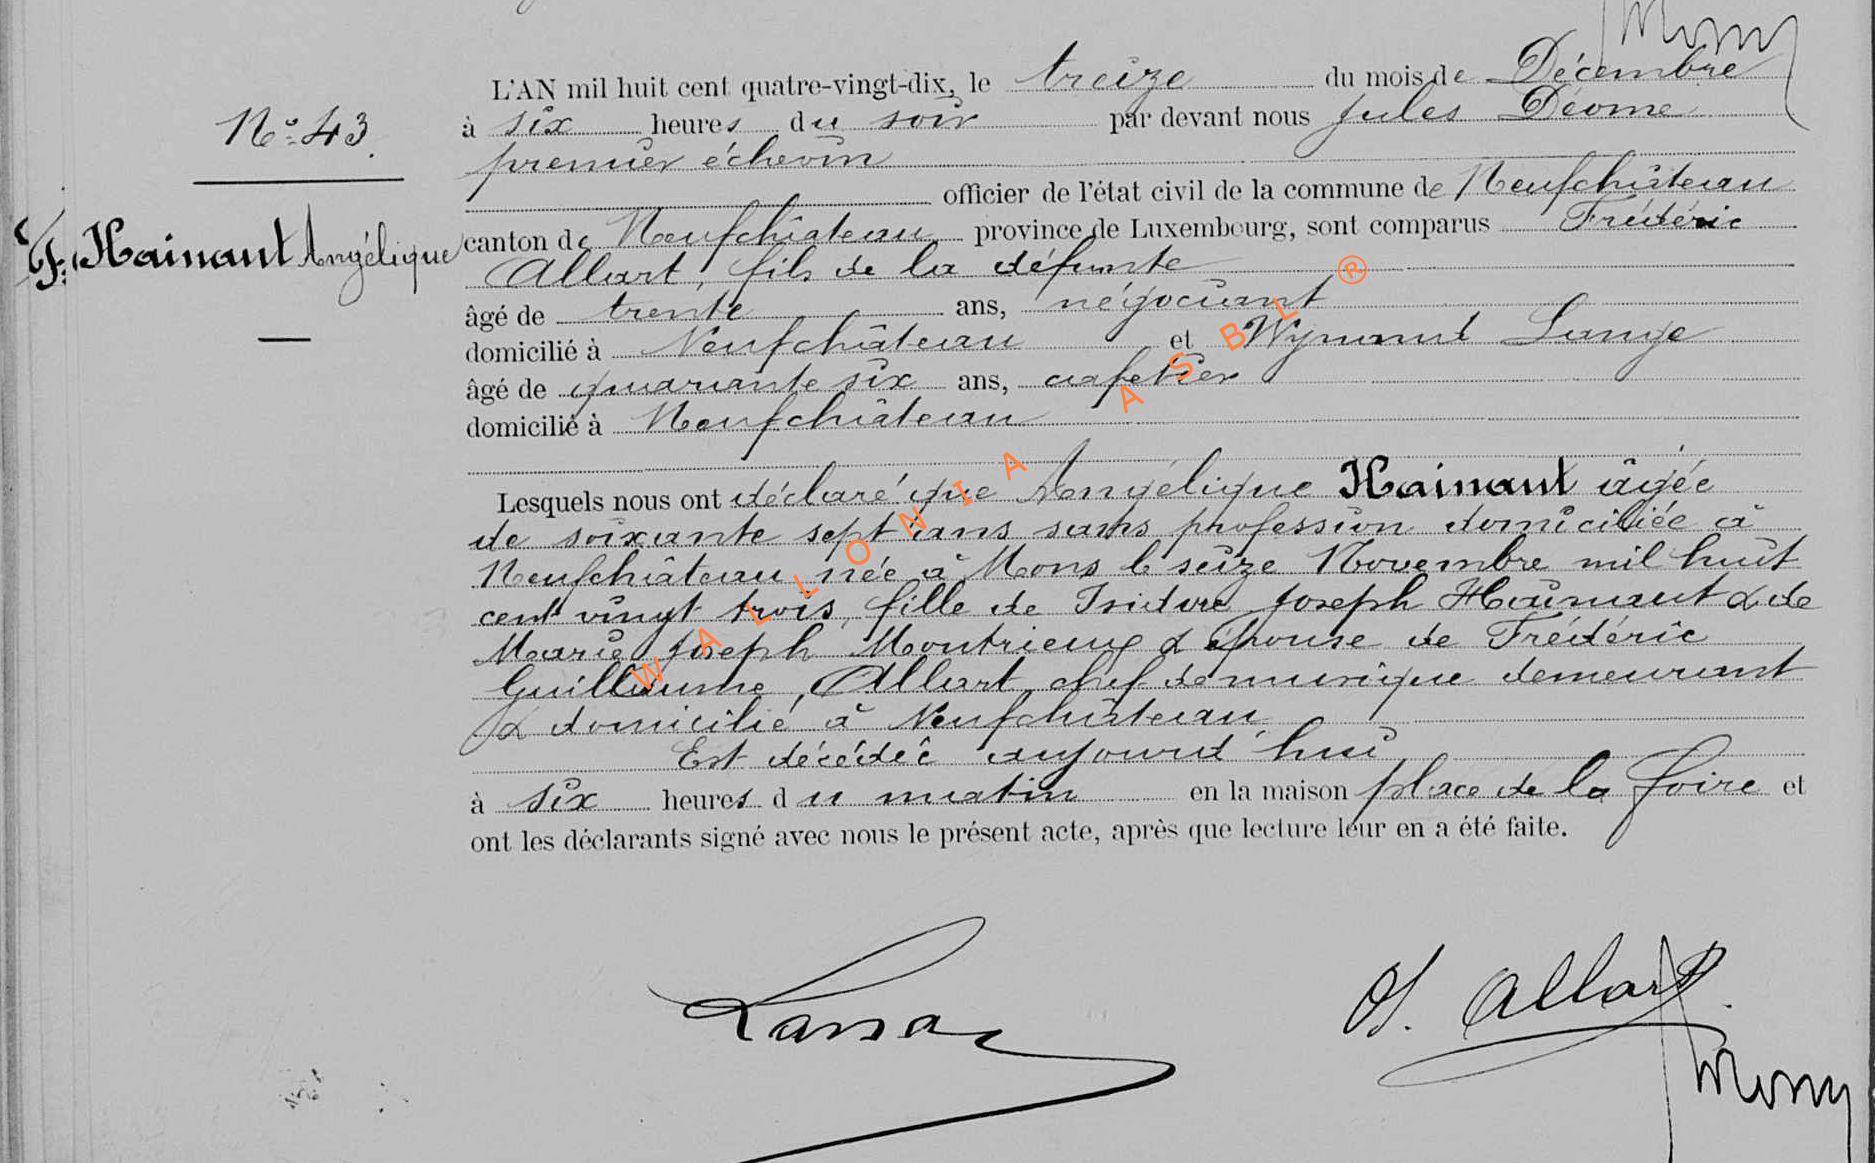 L'AN mil huit cent quatre-vingt-dix, le treize du mois de Décembre
à six heures du soir par devant nous Jules Déome
premier échevin
officier de l'état civil de la commune de Neufchâteau
canton de Neufchâteau province de Luxembourg, sont comparus Frédéric
Allart, fils de la défunte
âgé de trente ans, négociant
domicilié à Neufchâteau et Wynand
âgé de quarante six ans, cafetier
domicilié à Neufchâteau
Lesquels nous ont déclaré que Angélique Hainaut âgée
de soixante sept ans sans profession domiciliée à
Neufchâteau née à Mons le seize Novembre mil huit
cent vingt trois, fille de Isidore Joseph Hainaut & de
Marie Joseph Montrieux & épouse de Frédéric
Guillaume Allart chef de musique demeurant
& domicilié à Neufchâteau
Est décédée aujourd'hui
à six heures du matin en la maison place de la foire et
ont les déclarants signé avec nous le présent acte, après que lecture leur en a été faite.
No. 43.
Hainaut Angélique
WALLONIA ASBL ®
Allart